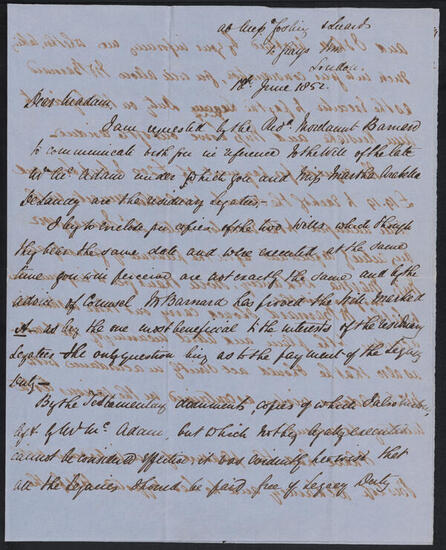 at Messrs Gosling &
Grays Inn
London
18th June 1852
Dear Madam,
I am requested by the Revd. Mordaunt Barnard
to communicate with you in reference to the Will of the late
Mr Mc. Adam under which you and Miss Martha
Delancey are the residuary legatees —
I beg to enclose you copies of the two Wills, which though
they bear the same date and were executed at the same
time you will perceive are not exactly the same and by the
advice of Counsel Mr Barnard has proved the Will marked
A as being the one most beneficial to the interests of the residuary
legatees — the only question being as to the payment of the Legacy
Duty —
By the Testamentary documents copies of which I also
of Mr Mc. Adam, but which not being legally executed
cannot be considered effective it was evidently her wish that
all the legacies should be paid free of Legacy Duty